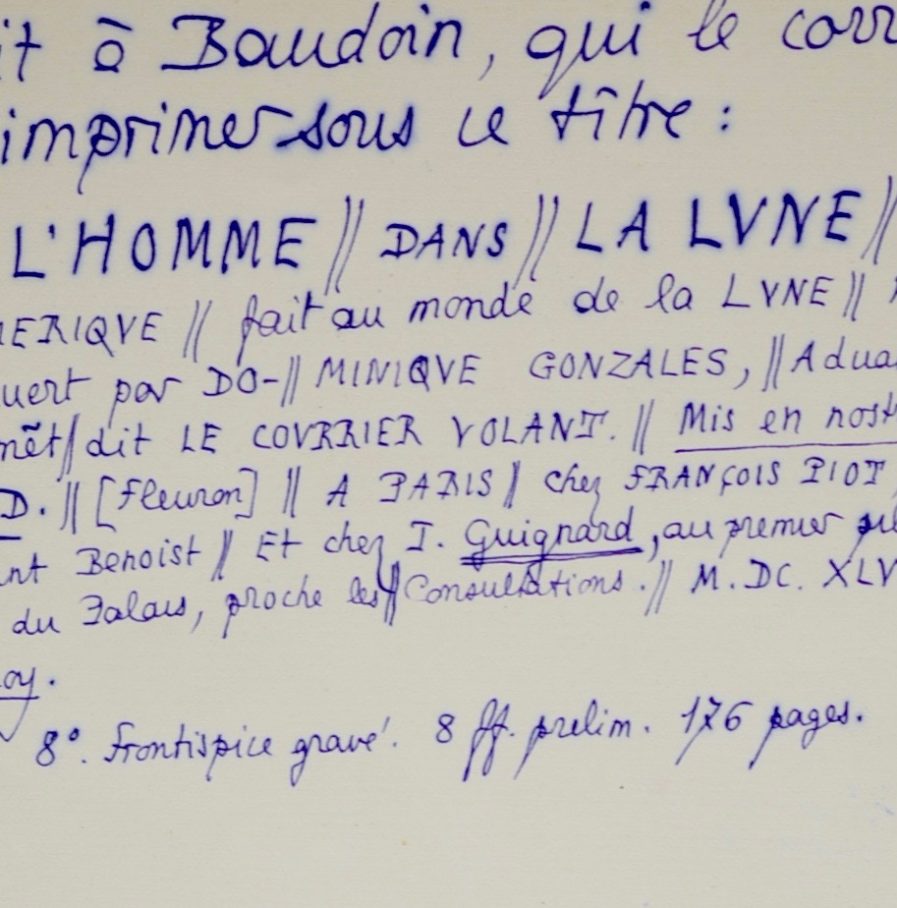 it à Baudoin, qui le corr
imprimer sous ce tître :
L'HOMME // DANS // LA LVNE //
ERIQVE // fait au monde de la LVNE //
uert par DO-// MINIQVE GONZALES, // Adua
mẽt // dit LE COVRRIER VOLANT. // Mis en nost
D. // [fleuron] // A PARIS / chez FRANÇOIS PIOT
nt Benoist // Et chez I. Guignard, au premier pil
du Palais, proche les // Consultations. // M. DC. XLV
oy.
8°. frontispice gravé. 8 ff. prelim. 176 pages.